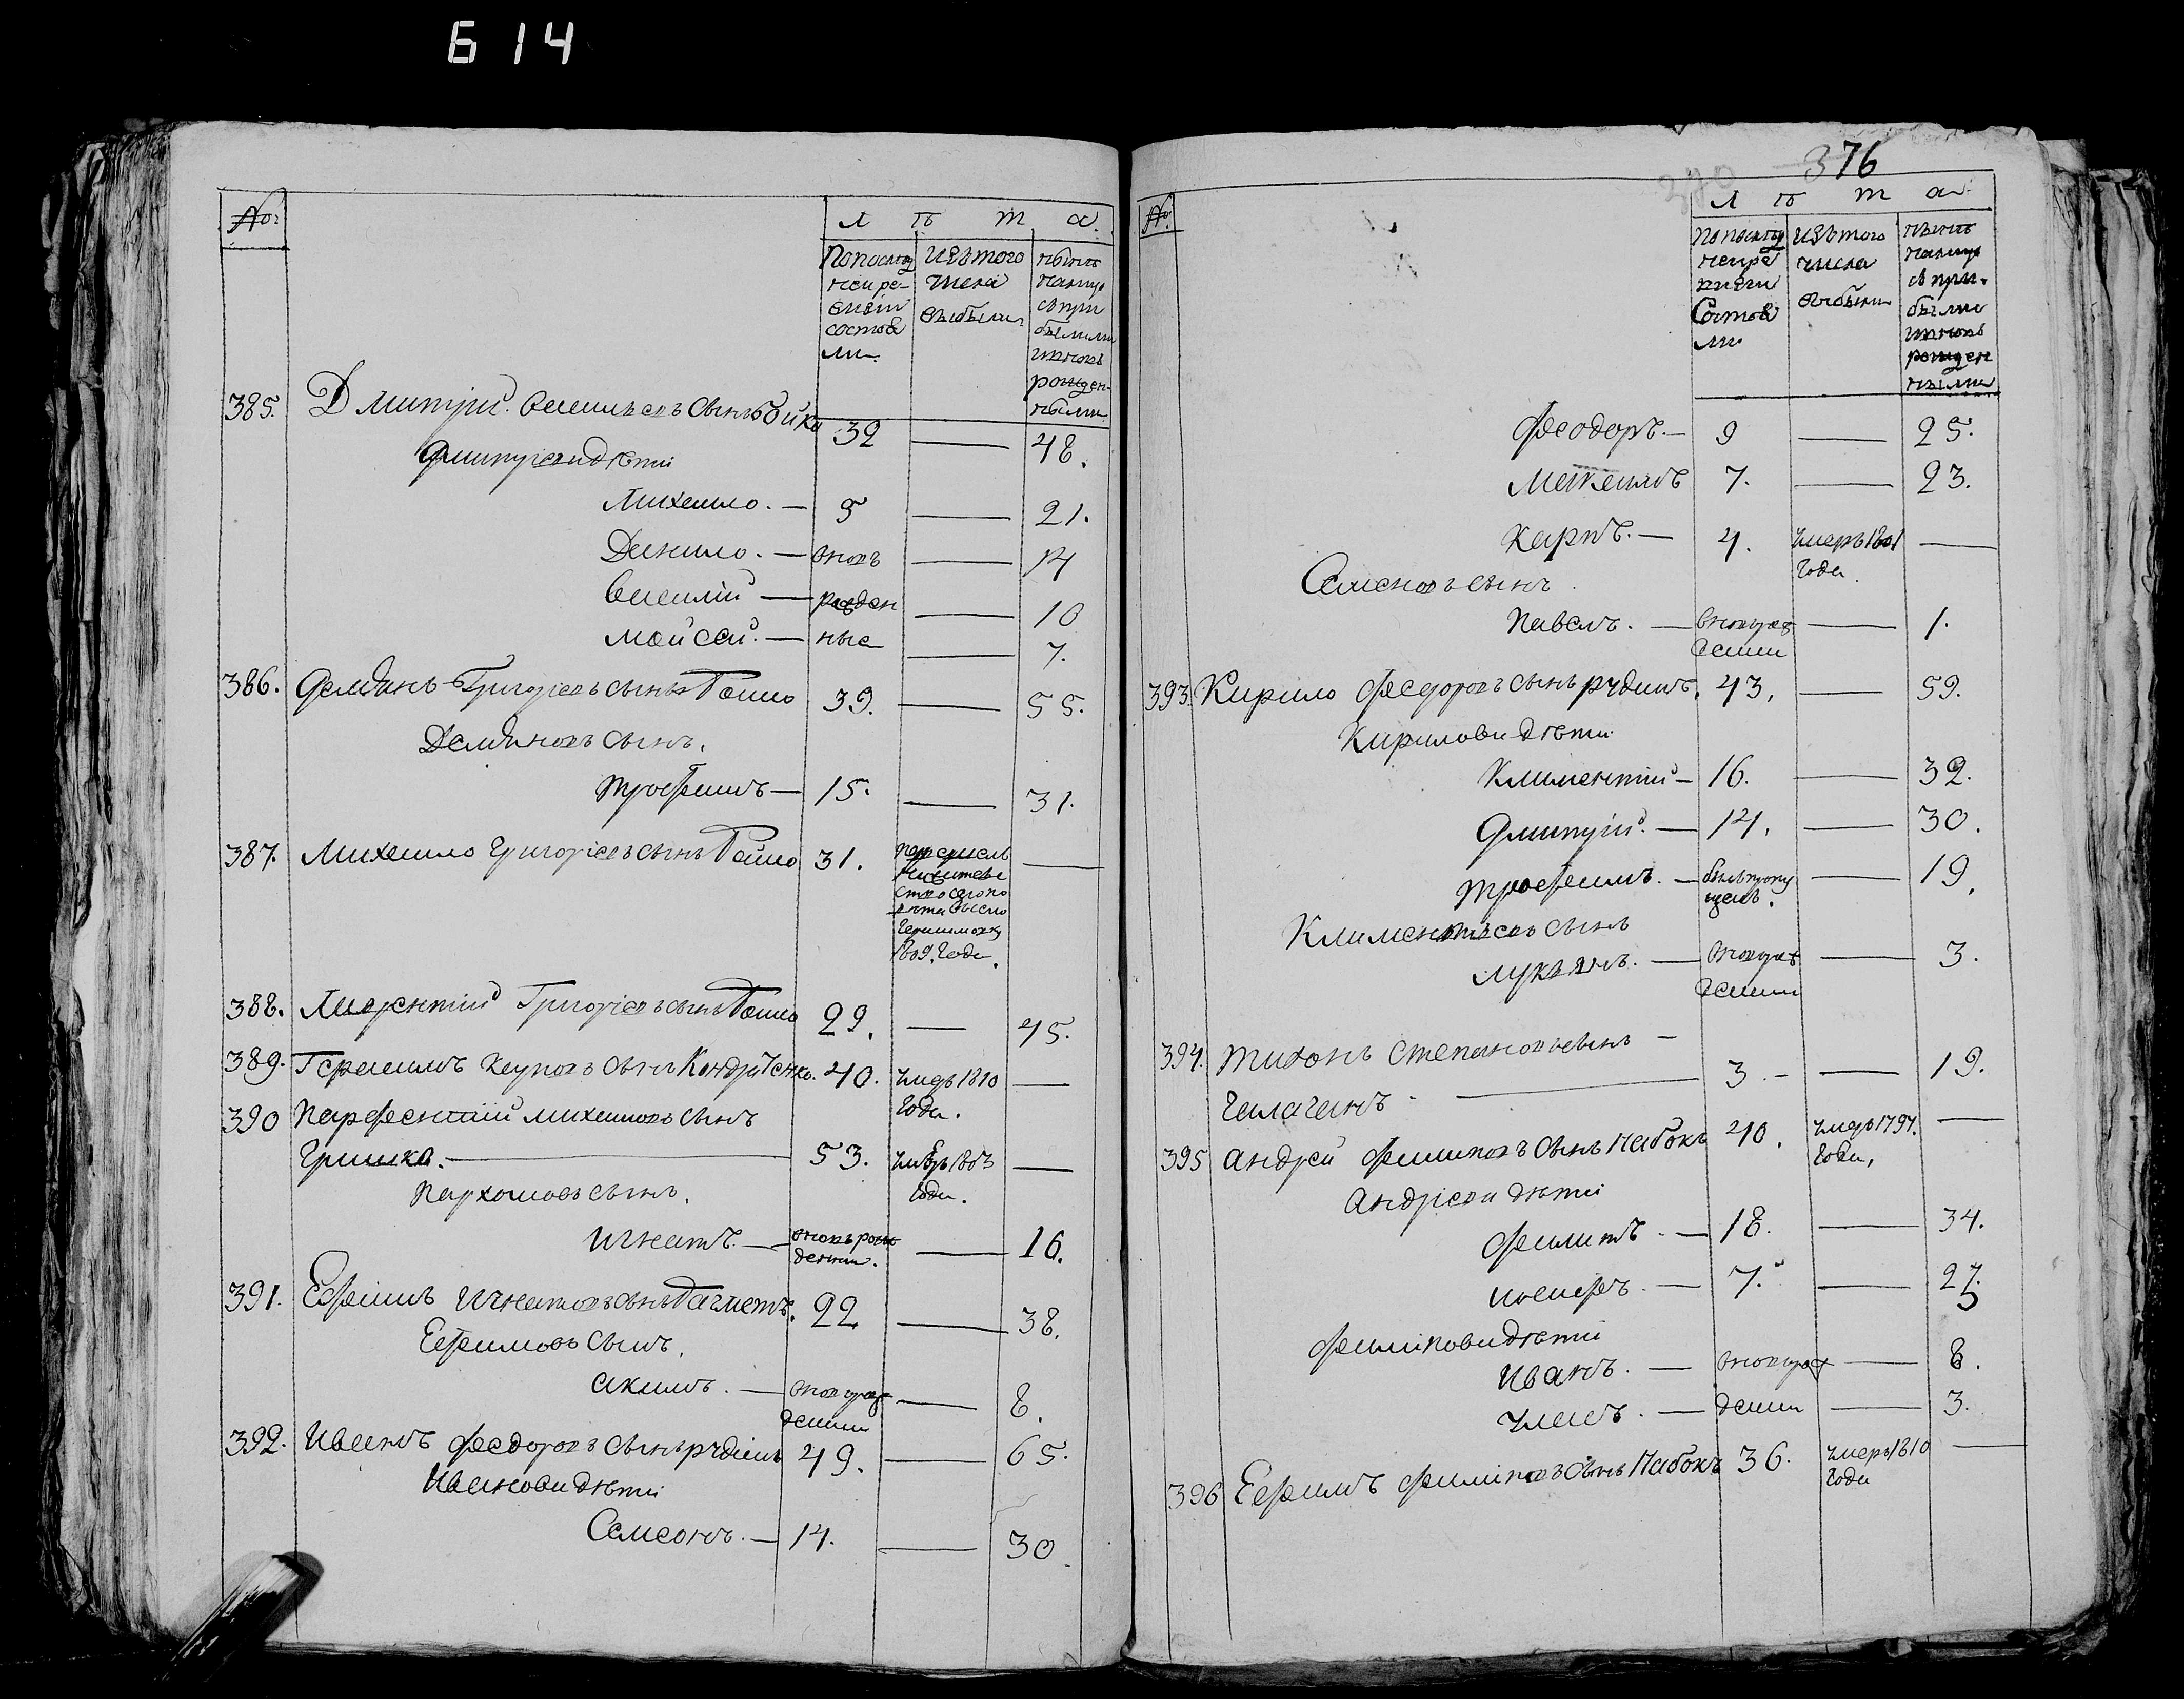 614
№
Л ѣ т а
По послед
ней ре-
визіи
состоя
ли
Изъ того
числа
выбыли
нынѣ
налицо
съ при
былыми
и вновь
рожден-
ными
385. Дмитрій Василіевъ сынъ Бойко 32 — 48.
Дмитріеви дѣти
Михайло. — 5 — 21.
Данило. — вновь — 14
Василій — рожден — 10
Мойсей. — ные — 7.
386. Демянъ Григоріевъ сынъ 39. — 55.
Демяновъ сынъ.
Трофимъ — 15. — 31.
387. Михайло Григоріевъ сынъ 31. —
1809. года.
388. Григоріевъ сынъ 29. — 45.
389. Герасимъ Карповъ сынъ Кондратенко. 40. умеръ 1810 —
года.
390 Парфентій Михайловъ сынъ
Гришка. — 53. умеръ 1803 —
года.
Пархомовъ сынъ.
Игнатъ. — вновь рож — 16.
денни.
391. Ефимъ Игнатовъ сынъ 22 — 38.
Ефимовъ сынъ.
Акимъ. — вновь рож — 8.
денни
392. Иванъ Федоровъ сынъ Рудимъ 49. — 65.
Иванови дѣти
Семіонъ. — 14. — 30.
376
№
Л ѣ т а
По послед
ней ре
визіи
Состоя
ли
Изъ того
числа
выбыли
нынѣ
налицо
съ при-
былми
и вновь
рожден
ными
Феодоръ. — 9 — 25.
Макаимъ 7. — 23.
Карпъ. — 4. умеръ 1801 —
года.
Семеновъ сынъ.
Павелъ. — вновь рож — 1.
денни
393. Кирило Федоровъ сынъ Рудимъ. 43. — 59.
Кирилови дѣти
Климентій — 16. — 32.
Дмитрій. — 14. — 30.
Трофимъ. — былъ пропу — 19.
щенъ.
Климентіевъ сынъ
Лукянъ. — вновь рож — 3.
денни
394. Тихонъ Степановъ сынъ —
Чалаганъ — 3. — — 19.
395 Андрей Филиповъ сынъ Набокъ 40. умеръ 1797. —
года.
Андріеви дѣти
Филипъ. — 18. — 34.
Иосифъ. — 7. — 27.
Филипови дѣти
Иванъ. — вновь рож — 8.
Уласъ. — денни — 3.
396 Ефимъ Филиповъ сынъ Набокъ 36. умеръ 1810 —
года